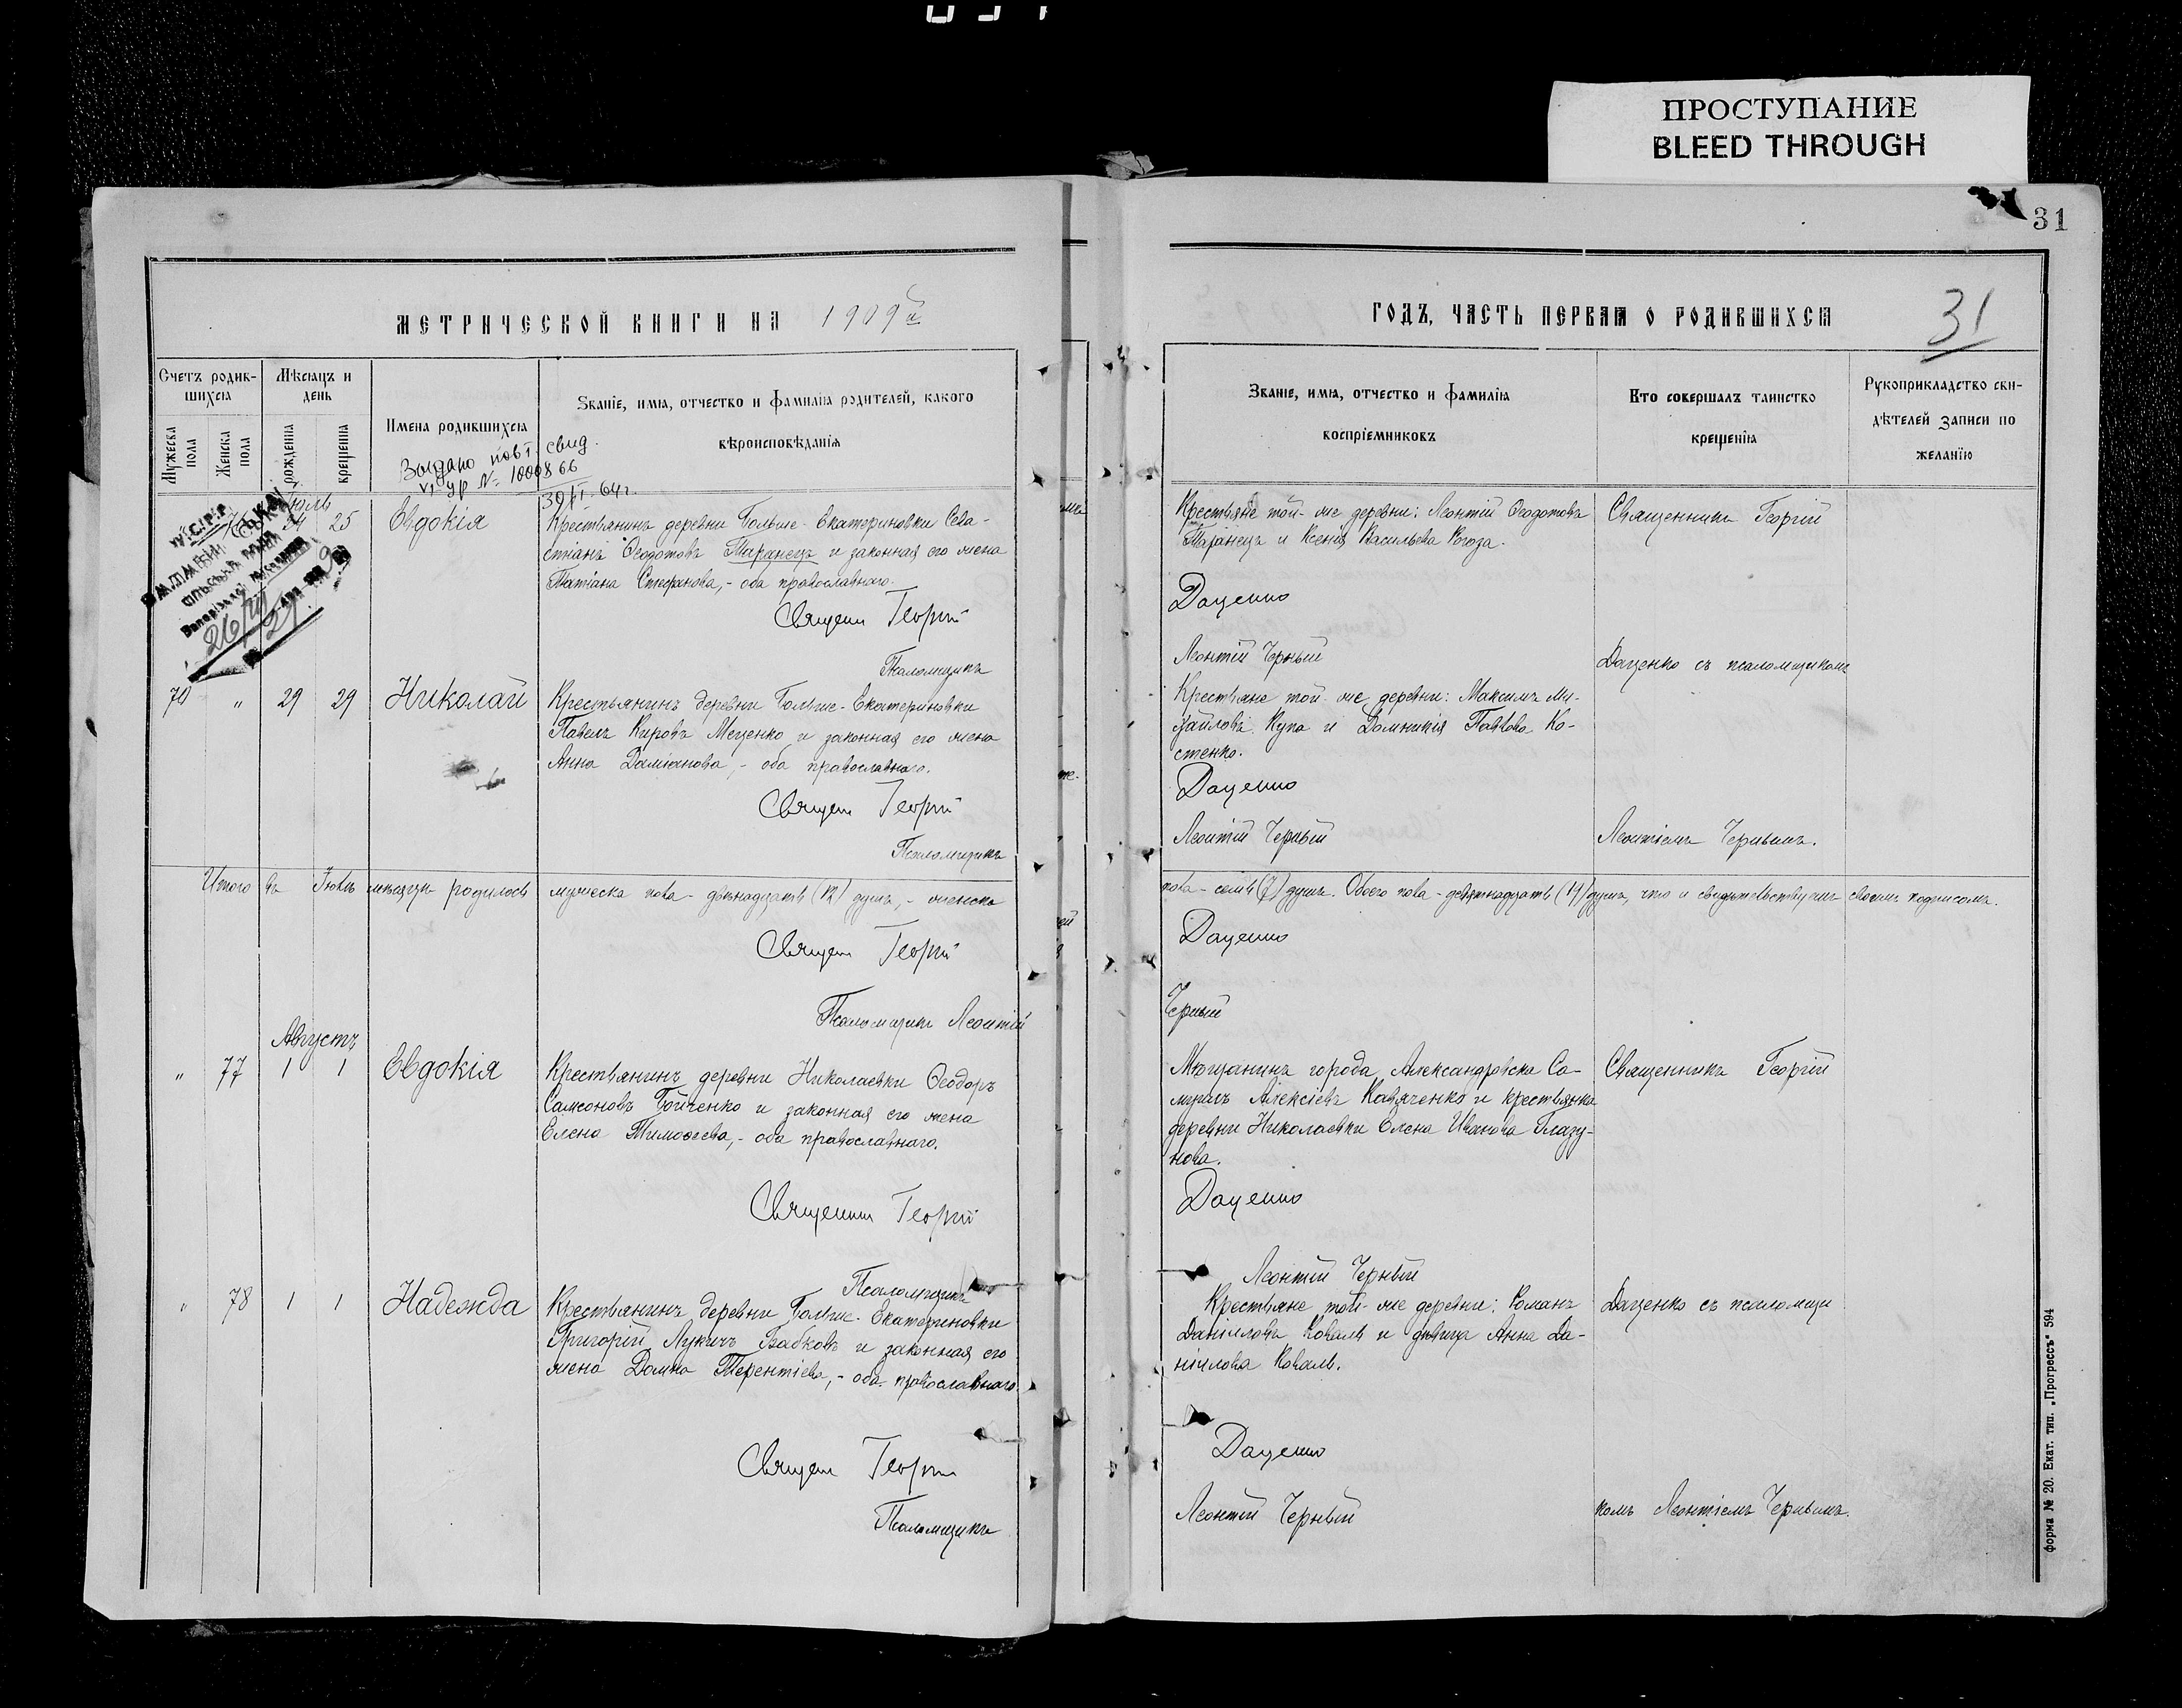 ПРОСТУПАНИЕ
BLEED THROUGH
31
МЕТРИЧЕСКОЙ КНИГИ НА 1909й
Счетъ родив-
шихся
Мѣсяцъ и
день
Мужеска
пола
Женска
пола
рожденія
крещенія
Имена родившихся
Званіе, имя, отчество и фамилія родителей, какого
вѣроисповѣданія
Выдано повт. свид.
VI-УР № 1000866
30/XI-64г.
Іюль
24 25 Евдокія
Крестьянинъ деревни Больше-Екатериновки Сева-
стіанъ Ѳеодотовъ Таранецъ и законная его жена
Татіана Стефанова, - оба православнаго.
Священ Георгій
Псаломщикъ
70 " 29 29 Николай
Крестьянинъ деревни Больше-Екатериновки
Павелъ Кировъ Меценко и законная его жена
Анна Даміанова, - оба православнаго.
Священ Георгій
Псаломщикъ
Итого въ Іюлѣ мѣсяцѣ родилось мужеска пола - двѣнадцать (12) душъ, - женска
Священ Георгій
Псаломщикъ Леонтій
Августъ
" 77 1 1 Евдокія
Крестьянинъ деревни Николаевки Ѳеодоръ
Самсоновъ Бойченко и законная его жена
Елена Тимоѳеева, - оба православнаго.
Священник Георгій
Псаломщикъ
" 78 1 1 Надежда
Крестьянинъ деревни Больше-Екатериновки
Григорій Лукичъ Бабковъ и законная его
жена Домна Терентіева, - оба православнаго.
Священ Георгій
Псаломщикъ
ГОДЪ, ЧАСТЬ ПЕРВАЯ О РОДИВШИХСЯ
31
Званіе, имя, отчество и фамилія
воспріемниковъ
Кто совершалъ таинство
крещенія
Рукоприкладство сви-
дѣтелей записи по
желанію
Крестьяне той-же деревни: Леонтій Ѳеодотовъ
Таранецъ и Ксенія Васильева Рогоза.
Священникъ Георгій
Даценко
Леонтій Черный
Даценко съ псаломщикомъ
Крестьяне той-же деревни: Максимъ Ми-
хайловъ Купа и Домникія Павлова Ко-
стенко.
Даценко
Леонтій Черный
Леонтіемъ Чернымъ.
пола - семь (7) душъ. Обоего пола - девятнадцать (19) душъ, что и свидѣтельствуемъ своимъ подписомъ.
Даценко
Черный
Мѣщанинъ города Александровска Са-
муилъ Алексіевъ Кавяченко и крестьянка
деревни Николаевки Елена Иванова Глазу-
нова.
Священникъ Георгій
Даценко
Леонтій Черный
Крестьяне той-же деревни: Романъ
Даніиловъ Коваль и дѣвица Анна Да-
ніилова Коваль.
Даценко съ псаломщи
Даценко
Леонтій Черный
комъ Леонтіемъ Чернымъ.
форма № 20. Екат. тип. „Прогрессъ" 594